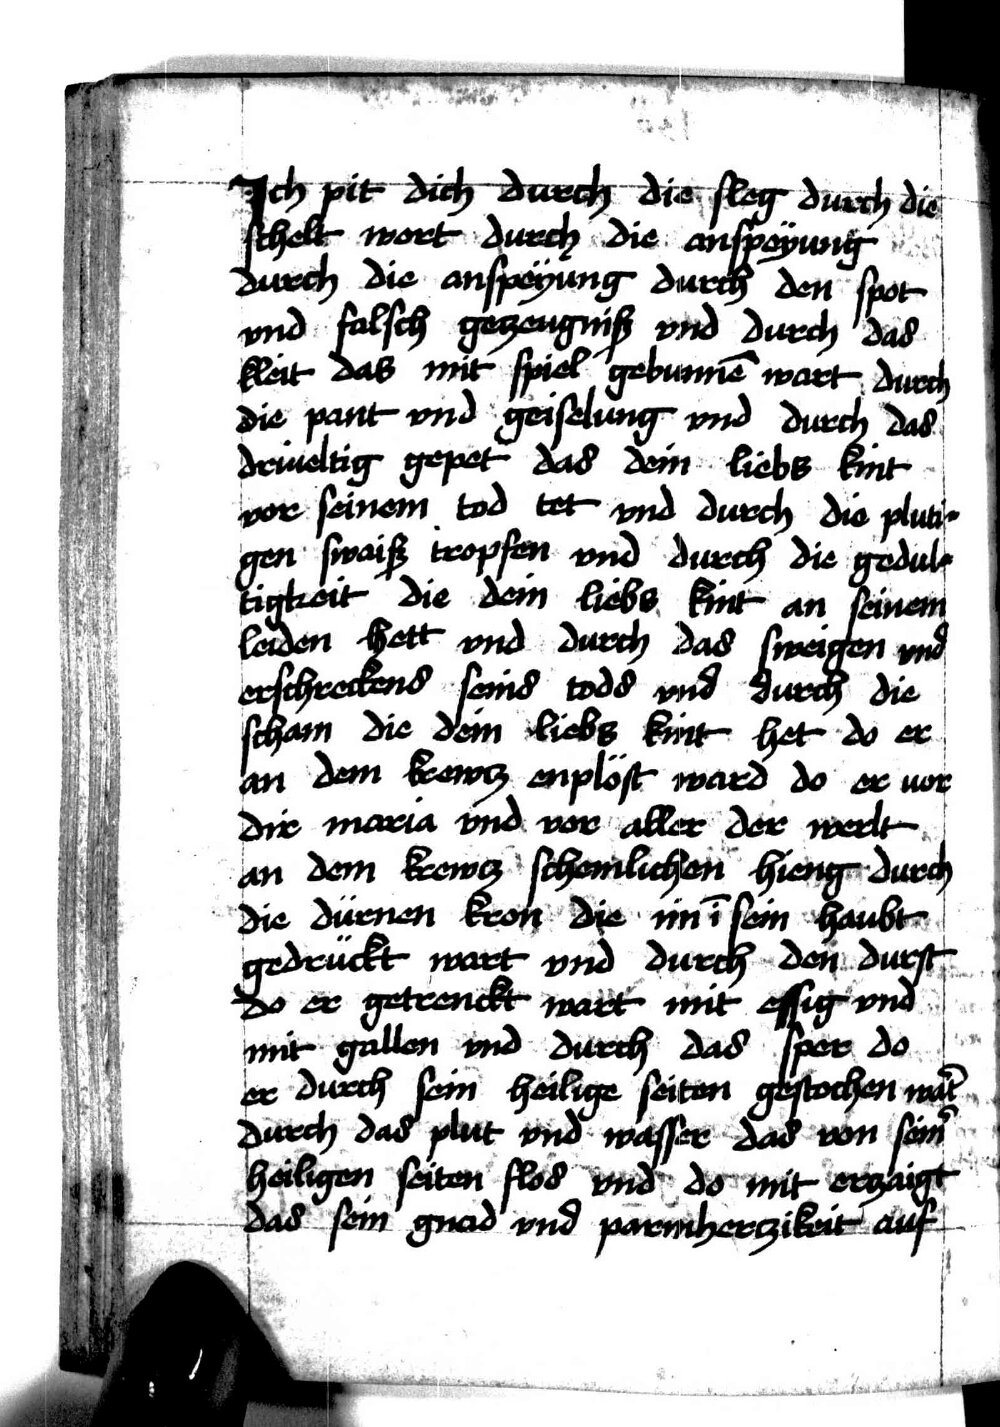 Ich pit dich durch die sleg durch die
schelt wort durch die anspeÿung
durch die anspeÿung durch den spot
vnd falsch geczeugniß vnd durch das
kleit das mit spiel gebunnē wart durch
die pant vnd geiselung vnd durch das
driueltig gepet das dein liebs kint
vor seinem tod tet vnd durch die pluti-
gen swaiß tropfen vnd durch die gedul-
tigkeit die dein liebs kint an seinem
leiden hett vnd durch das sweigen vnd
erschreckens seins tods vnd durch die
scham die dein liebs kint het do er
an dem krewcz enplöst ward do er vor
dir maria vnd vor aller der werlt
an dem krewcz schemlichen hieng durch
die dürnen kron die im ī sein haubt
gedrückt wart vnd durch den durst
do er getrenckt wart mit essig vnd
mit gallen vnd durch das sper do
er durch sein heilige seiten gestochen wa͛t
durch das plut vnd wasser das von sein͛
heiligen seiten flos vnd do mit erczaigt
das sein gnad vnd parmherczikeit auf